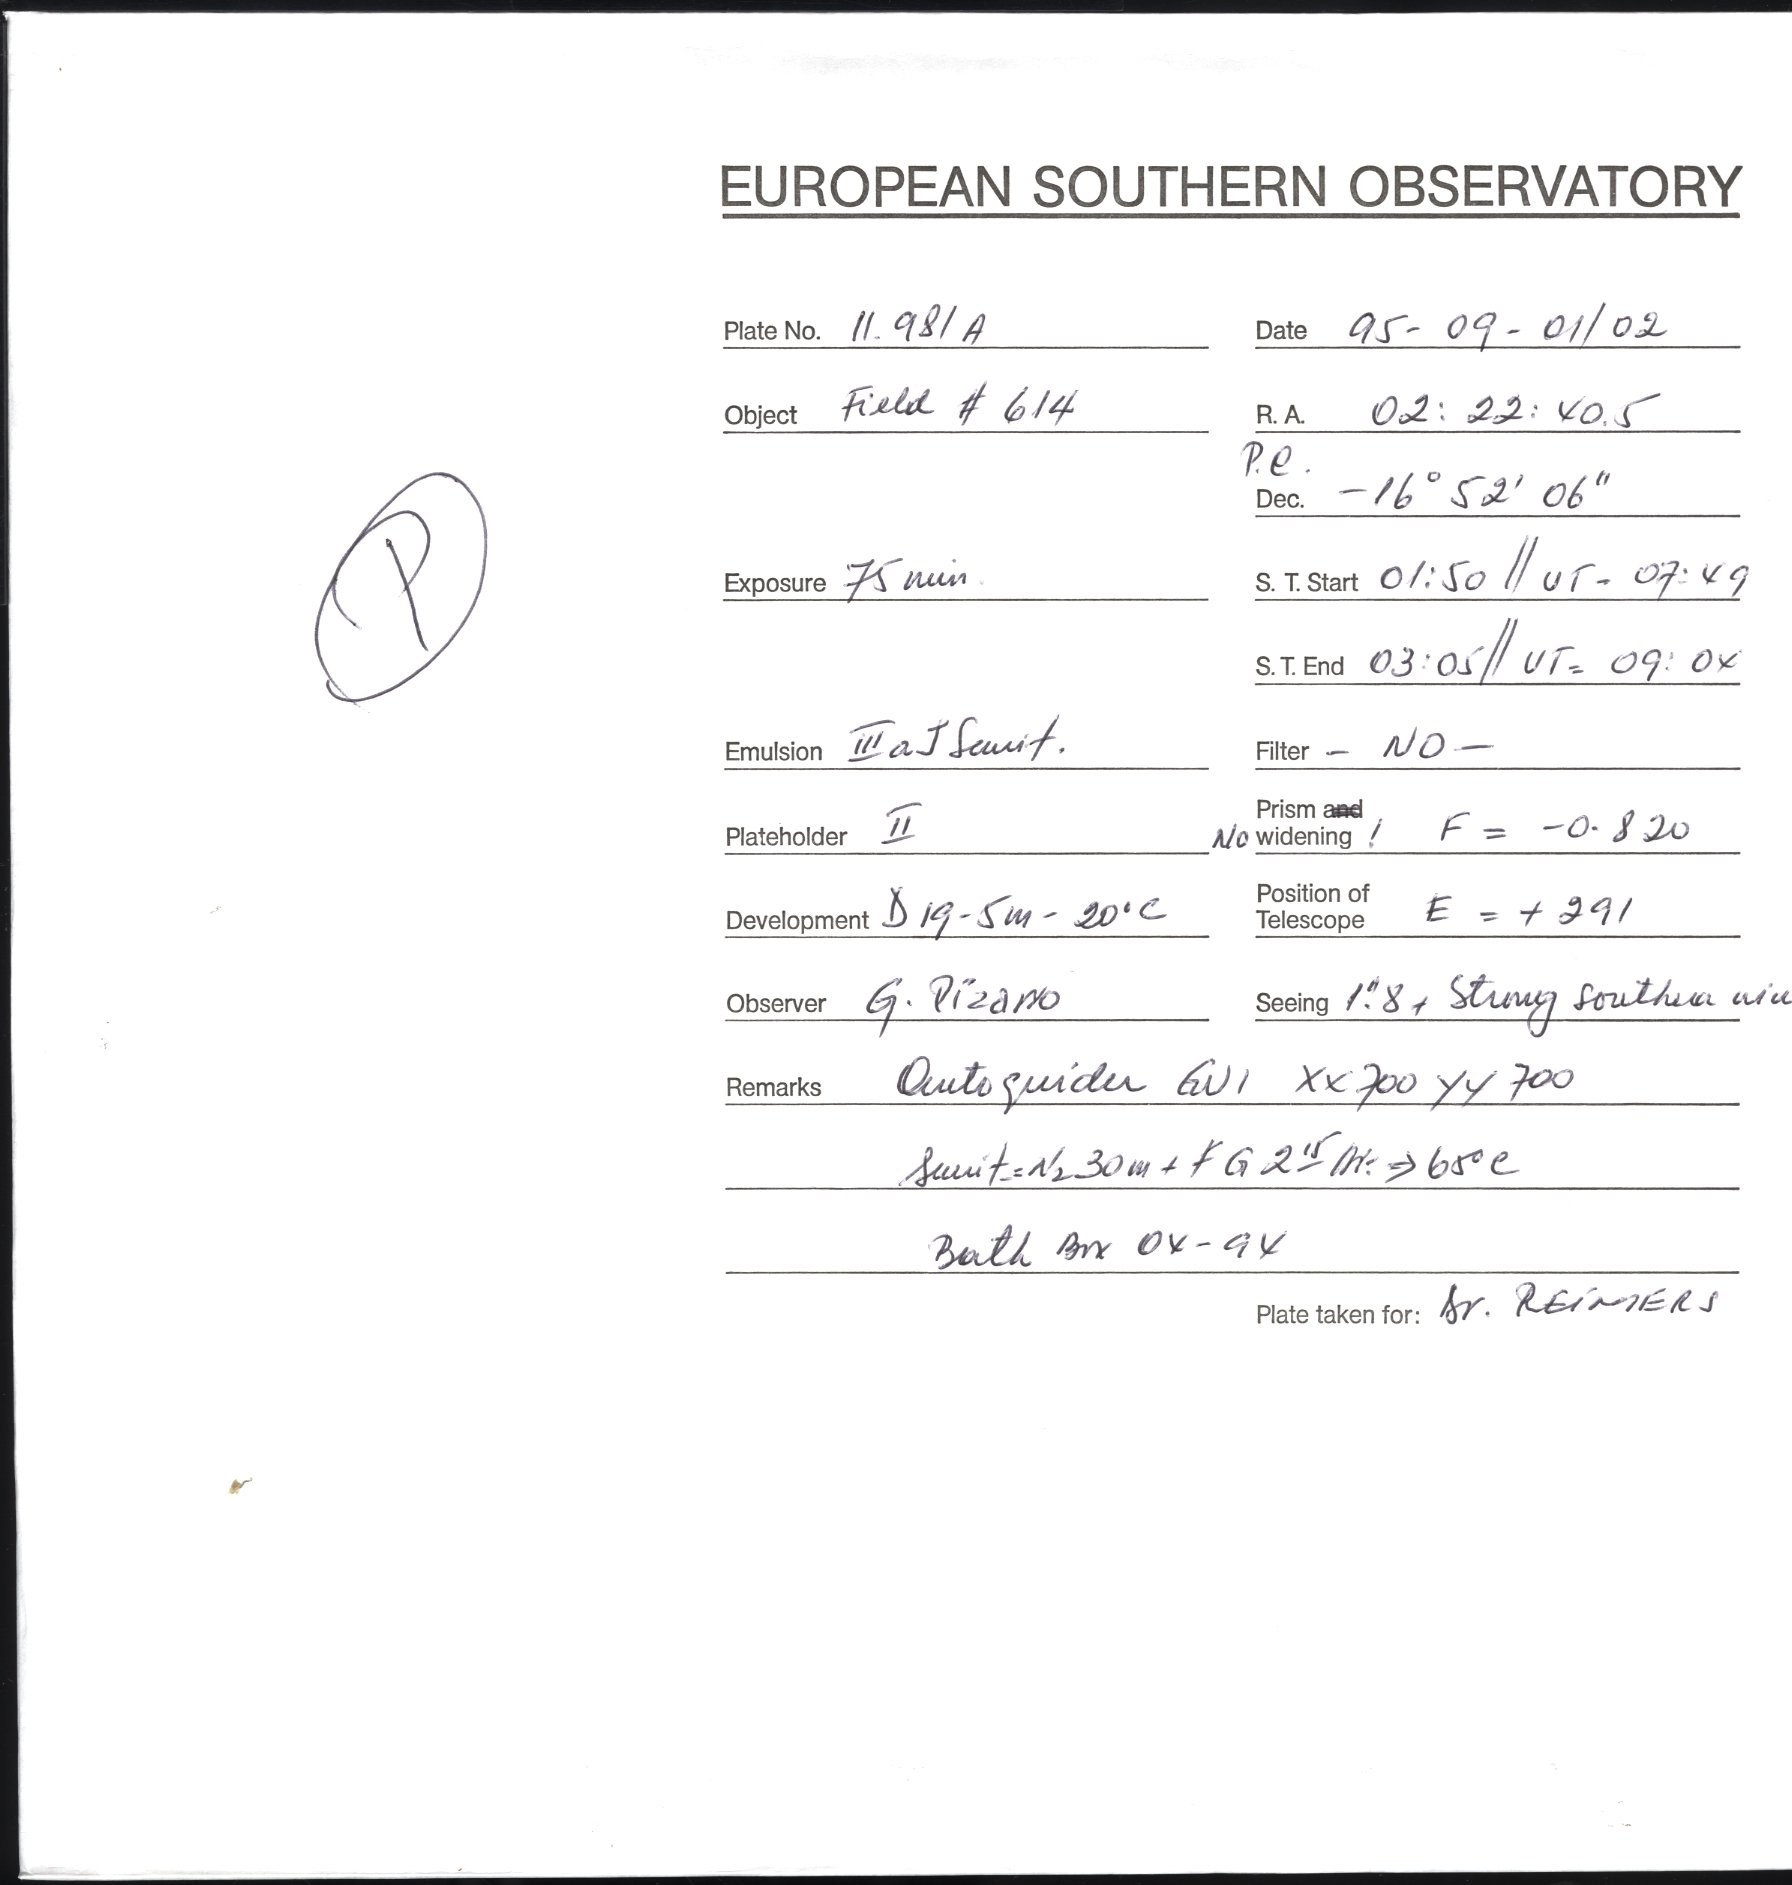 EUROPEAN SOUTHERN OBSERVATORY
Plate No. 11.981A Date 95-09-01/02
Object Field # 614 R. A. 02: 22: 40.5
P.e.
Dec. -16° 52' 06"
P
Exposure 75 min. S. T. Start 01:50 // UT- 07:49
S. T. End 03:05 // UT= 09:04
Emulsion III a J Sensit. Filter - NO -
Plateholder II No Prism and widening ! F = -0.820
Development D19-5m-20°C Position of Telescope E = +291
Observer G. Pizarro Seeing 1".8, Strong southern
Remarks Autoguider GV1 XX700 YY700
Sensit=N2 30m + FG 2 ⇒ 65°C
Bath Box 04-94
Plate taken for: Dr. REIMERS